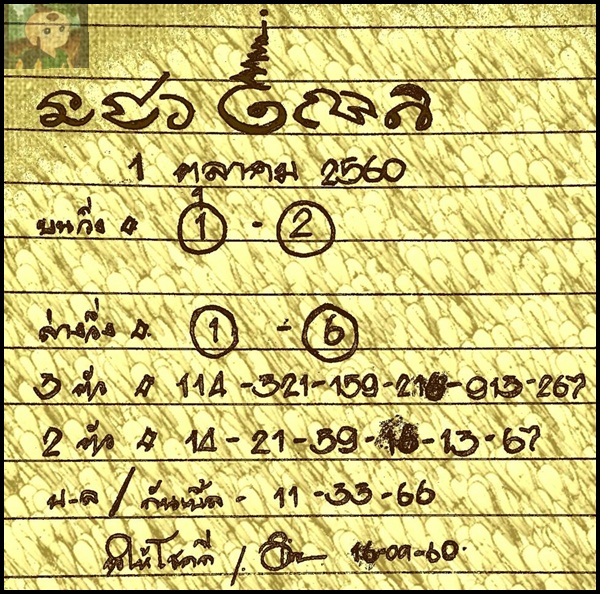 1 ตุลาคม 2560
บนวิ่ง 1 - 2
ล่างวิ่ง 1 - 6
3 ตัว 114 -321-159-216-913-267
2 ตัว 14-21-59-16-13-67
บ-ล / กันเบิ้ล - 11 -33-66
ขอให้โชคดี / 16-09-60.